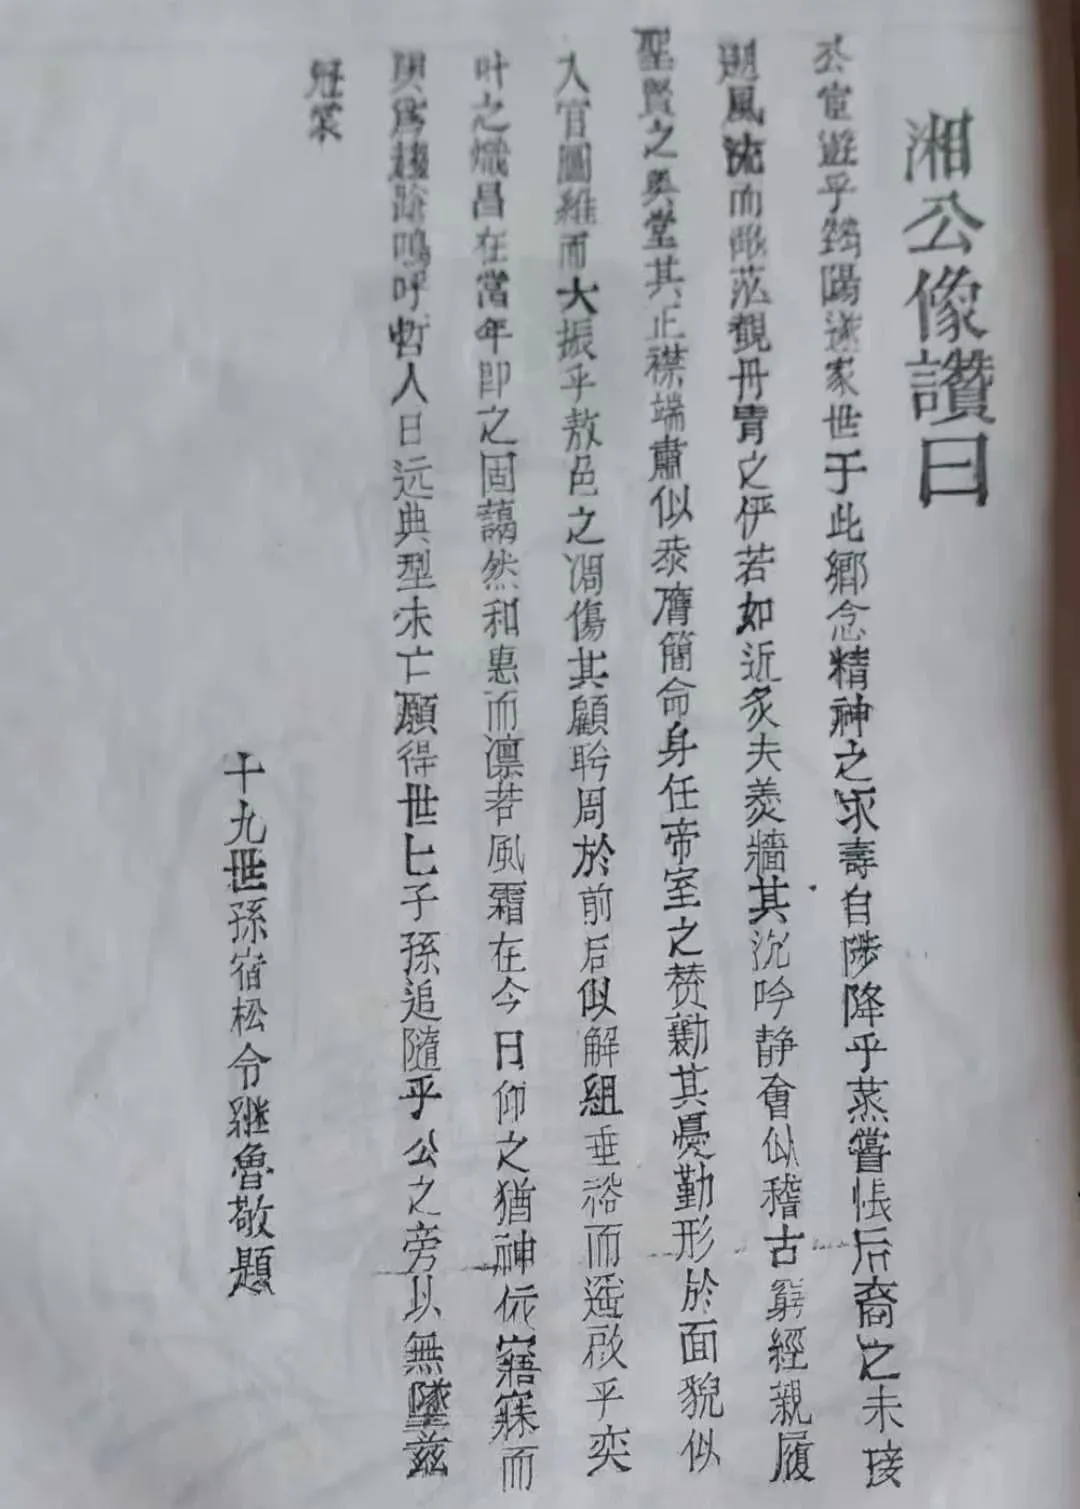 湘公像讚曰
公宦遊乎筠陽遂家世于此鄉念精神之永壽自陟降乎蒸嘗悵后裔之未接
風流而泒觀丹青之伊若如近炙夫羮牆其沉吟静會似稽古窮經親履
聖賢之奥堂其正襟端肅似泰膺簡命身任帝室之赞勷其憂勤形於面貌似
入官圖維而大振乎敖邑之凋傷其顧盻周於前后似解組垂裕而遥啟乎奕
叶之熾昌在當年即之固藹然和惠而凛若風霜在今日仰之猶神依寤寐而
與爲趨蹌嗚呼哲人日远典型未亡願得世匕子孫追隨乎公之旁以無墜兹
冠裳
十九世孫宿松令継魯敬題